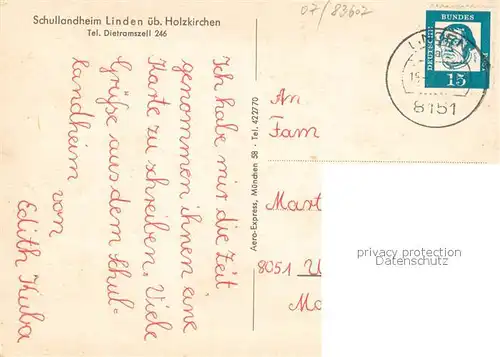 Schullandheim Linden üb. Holzkirchen
Tel. Dietramszell 246
07/83602
Ich habe mir die Zeit
genommen ihnen eine
Karte zu schreiben. Viele
Grüße aus dem Schul-
landheim von
Edith Kuba
Aero-Express, München 58 · Tel. 422770
LINDEN
8151
DEUTSCHE
BUNDES
15
An
Fam
Mart
8051 U
Ma
privacy protection
Datenschutz